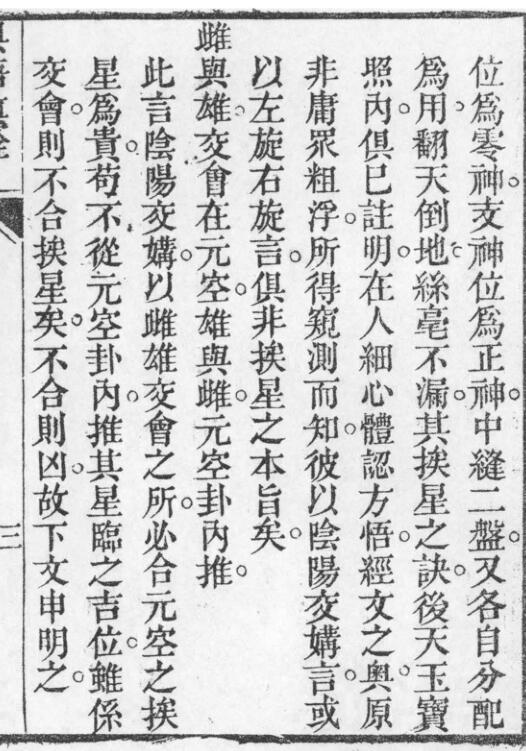 位爲零神。支神位爲正神。中縫二盤。又各自分配
爲用。翻天倒地。絲毫不漏。其挨星之訣。後天玉寶
照內。俱已註明。在人細心體認。方悟經文之奧。原
非庸眾粗浮。所得窺測而知。彼以陰陽交媾言。或
以左旋右旋言。俱非挨星之本旨矣。
雌與雄。交會在元空。雄與雌。元空卦內推。
此言陰陽交媾。以雌雄交會之所。必合元空之挨
星爲貴。苟不從元空卦內。推其星臨之吉位。雖係
交會。則不合挨星矣。不合則凶。故下文申明之。
三